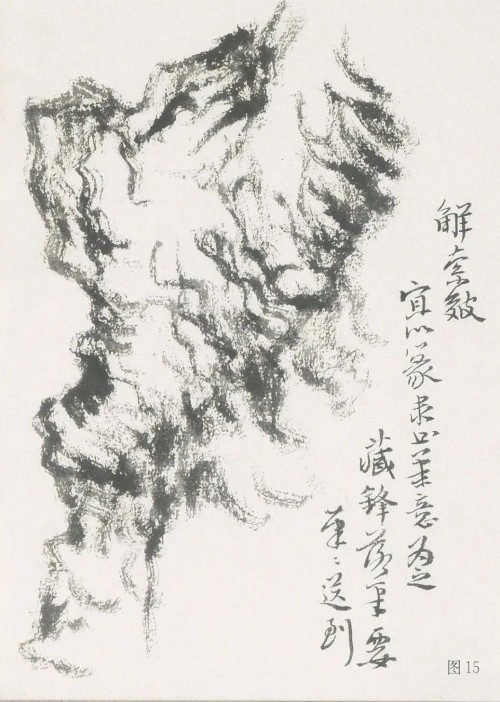 解索皴
宜以篆隶书笔意为之
藏鋒落笔要
笔〻送到
图15